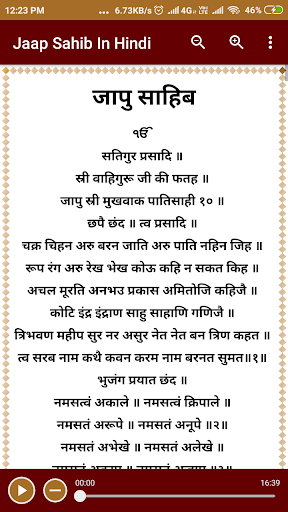 12:23 PM ... 6.73KB/s 4G VoLTE
Jaap Sahib In Hindi
जापु साहिब
ੴ
सतिगुर प्रसादि ॥
स्री वाहिगुरू जी की फतह ॥
जापु स्री मुखवाक पातिसाही १० ॥
छपै छंद ॥ त्व प्रसादि ॥
चक्र चिहन अरु बरन जाति अरु पाति नहिन जिह ॥
रूप रंग अरु रेख भेख कोऊ कहि न सकत किह ॥
अचल मूरति अनभउ प्रकास अमितोजि कहिजै ॥
कोटि इंद्र इंद्राण साहु साहाणि गणिजै ॥
त्रिभवण महीप सुर नर असुर नेत नेत बन त्रिण कहत ॥
त्व सरब नाम कथै कवन करम नाम बरनत सुमत॥१॥
भुजंग प्रयात छंद ॥
नमसत्वं अकाले ॥ नमसत्वं क्रिपाले ॥
नमसतं अरूपे ॥ नमसतं अनूपे ॥२॥
नमसतं अभेखे ॥ नमसतं अलेखे ॥
00:00 16:39